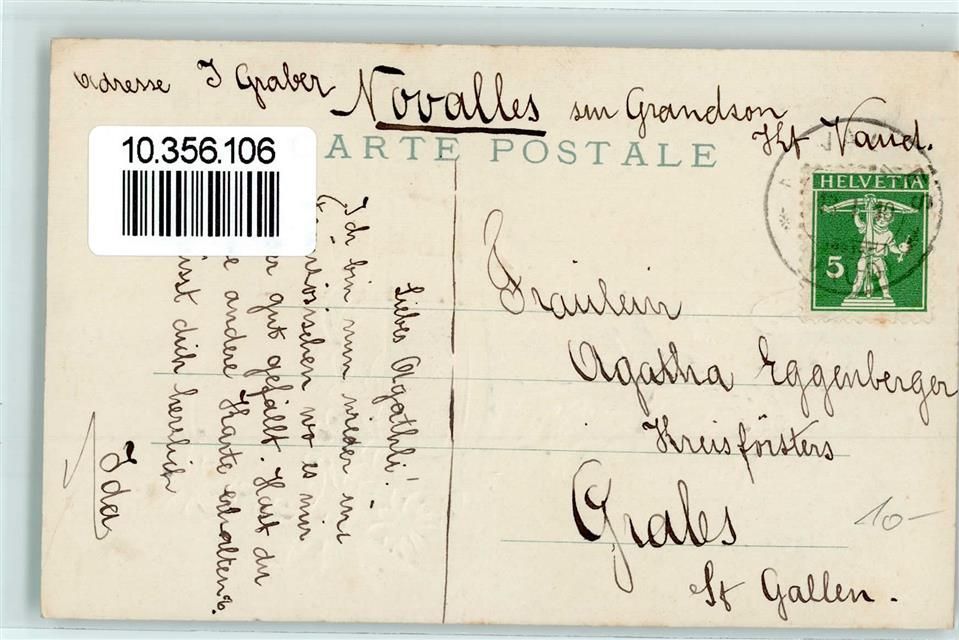 Adresse I Graber Novalles sur Grandson
Kt Vaud.
ARTE POSTALE
10.356.106
HELVETIA
5
Lieber Agathli!
Ich bin nun wieder im
wo es mir
gut gefällt. Hast du
andere Karte erhalten?
dich herzlich
Ida
Fräulein
Agatha Eggenberger
Kreisförsters
Grabs
St Gallen.
10-